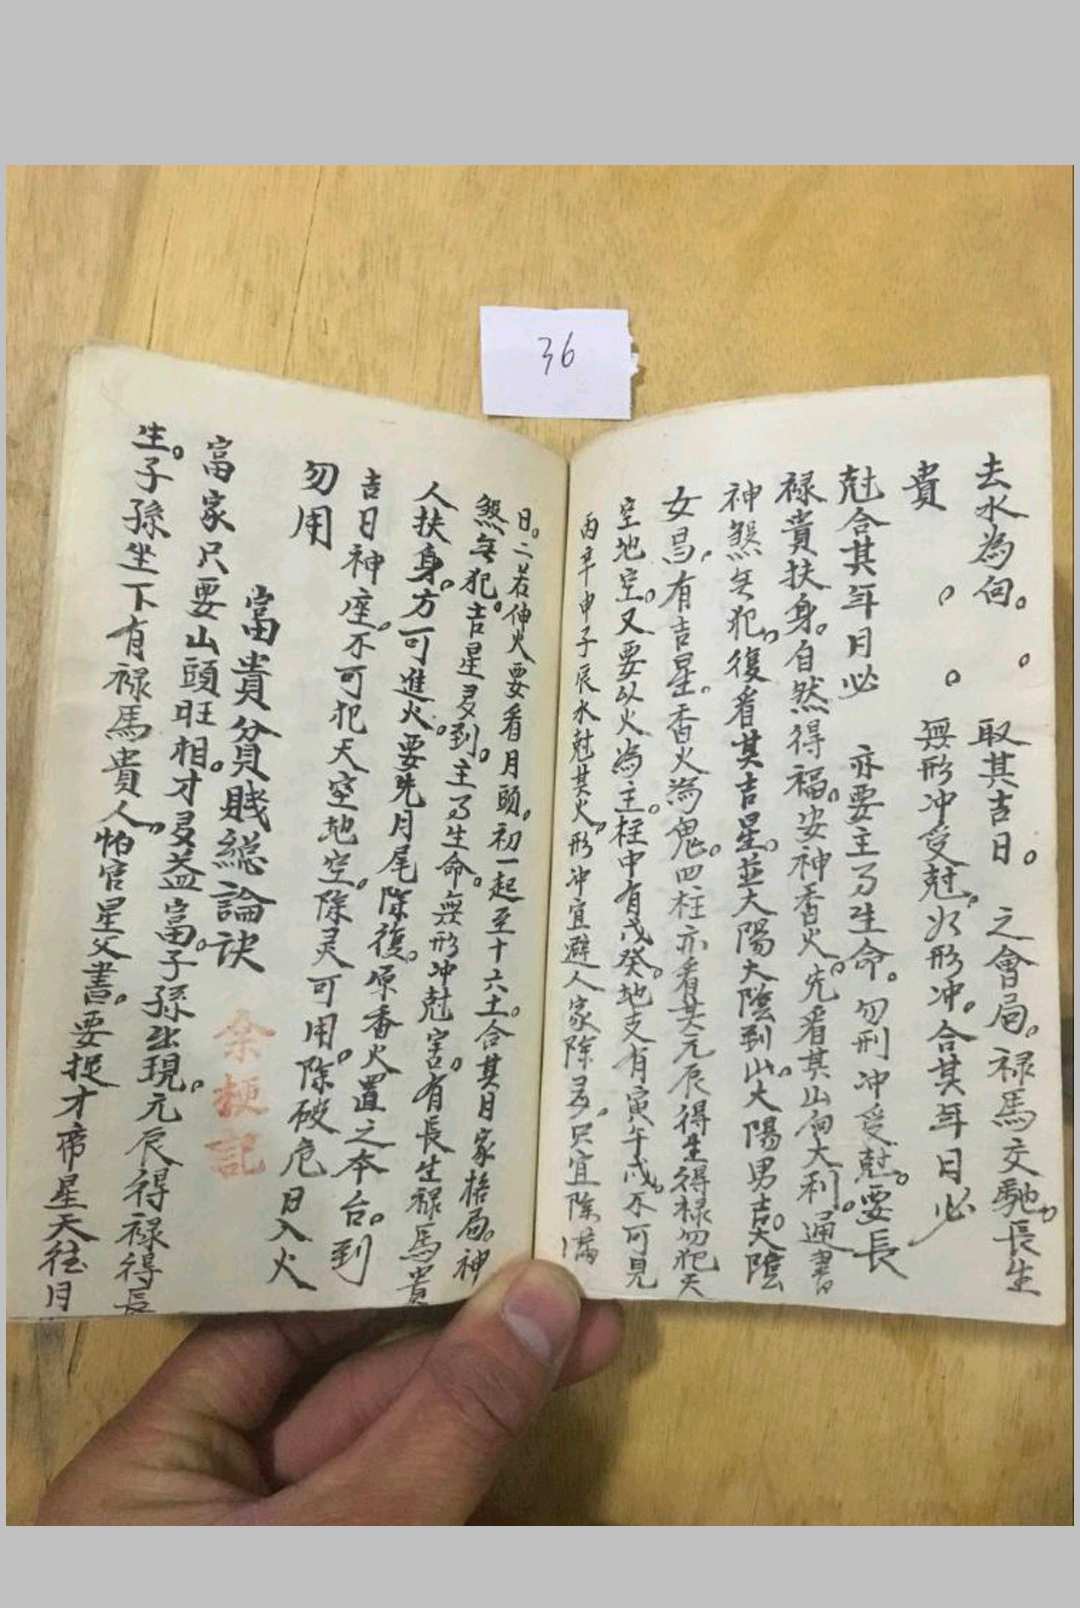 36
去水為何。 取其吉日。之會局。禄馬交馳。長生
貴 。。 無形冲受尅。形冲。合其年日必
尅合其年月必 亦要主生命。勿刑冲受尅。要長
禄貴扶身。自然得福。安神香火。先看其山向大利。通書
神煞無犯。復看其吉星。並大陽大陰到山。大陽男吉。大陰
女昌。有吉星。香火為鬼。四柱亦看其元辰得生得禄勿犯天
空地空。又要以火為主。柱中有戊癸。地支有寅午戌。不可見
丙辛申子辰水尅其火。形冲宜避人家除多。只宜除满
日。二若伸火要看月頭。初一起至十六土。合其日家格局。神
煞無犯。吉星多到。主生命。無形冲尅害。有長生禄馬貴
人扶身。方可進火。要先月尾除復。原香火置之本台。到
吉日神座。不可犯天空地空。除灵可用。除破危日入火
勿用
富貴貧賤総論訣 余梗記
富家只要山頭旺相。才多益富。子孫出現。元辰得禄得長
生。子孫坐下有禄馬貴人。怕官星父書。要捉才帝星天往月